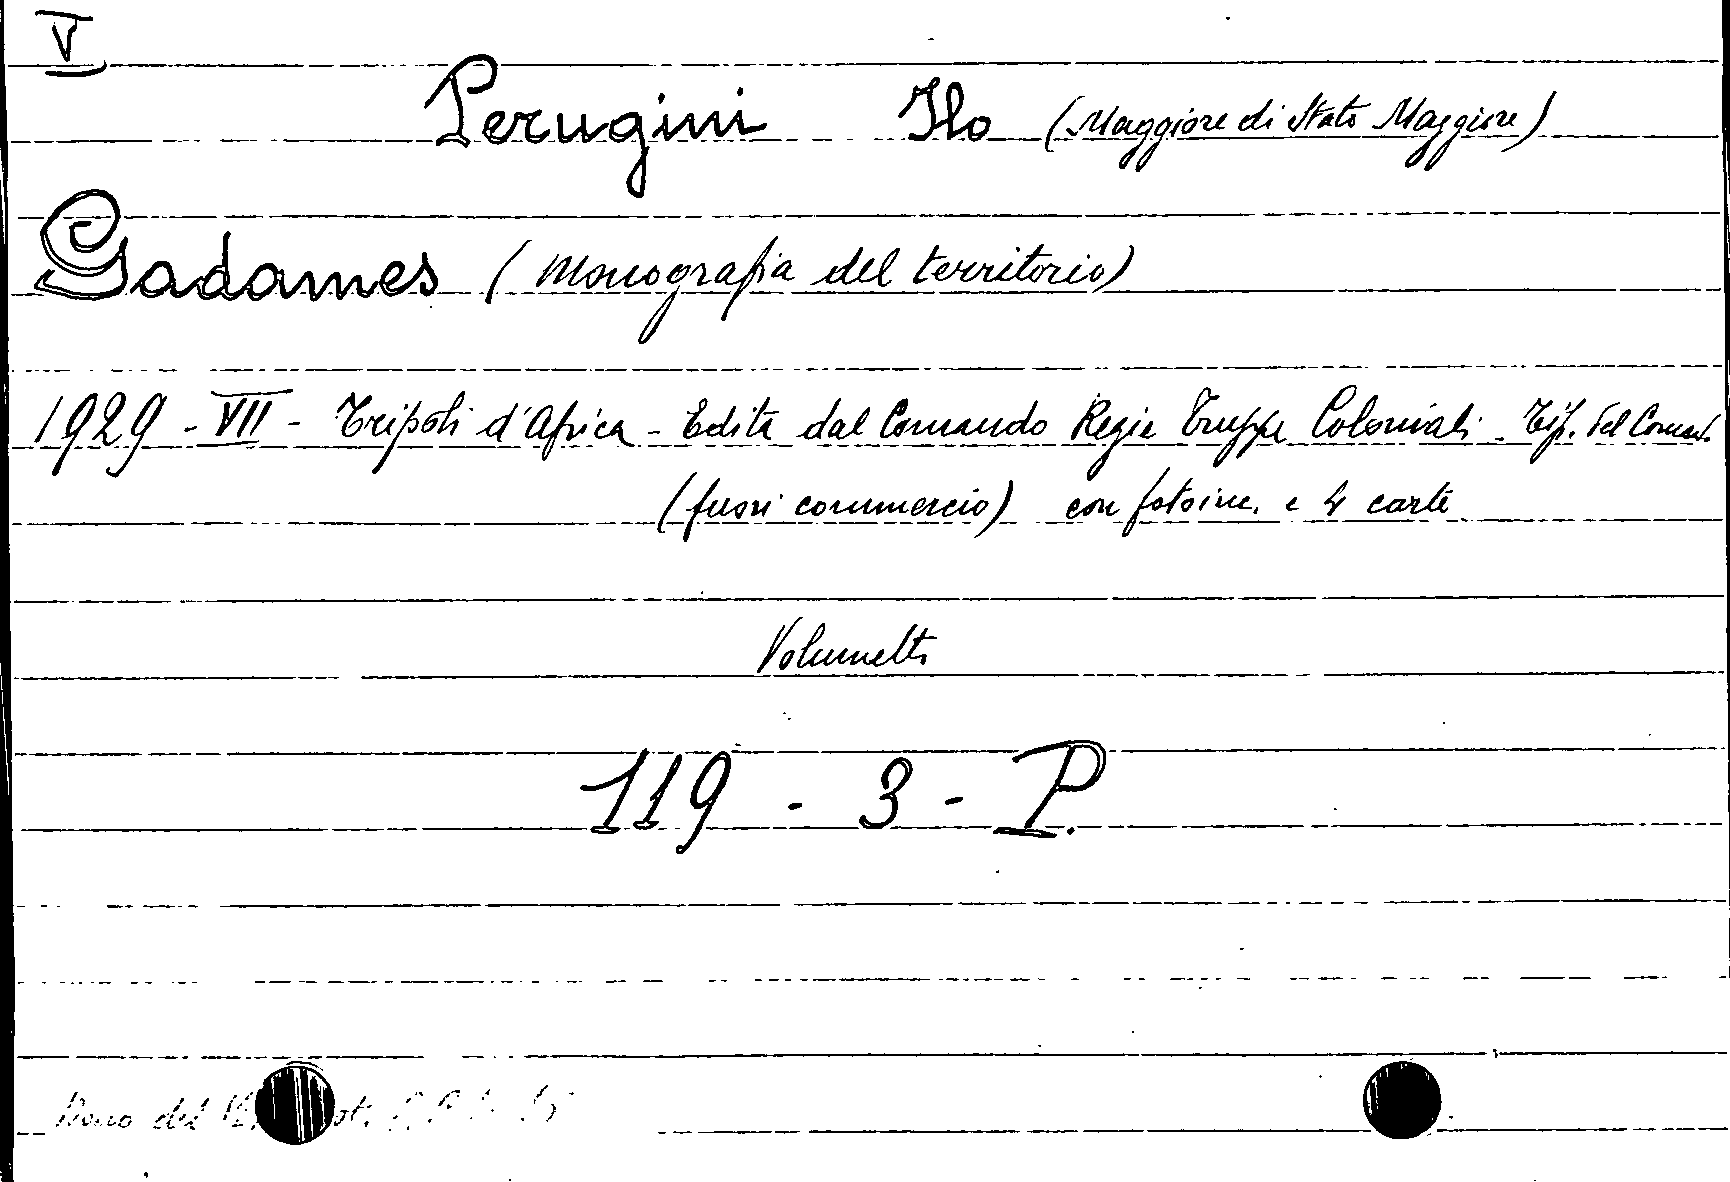 V
Perugini Ilo (Maggiore di Stato Maggiore)
Gadames (Monografia del territorio)
1929 - VII - Tripoli d'Africa - Edita dal Comando Regie Truppe Coloniali - Tip. del Comand.
(fuori commercio) con fotoinc. e 4 carte
Volumetto
119 - 3 - P.
Dono del